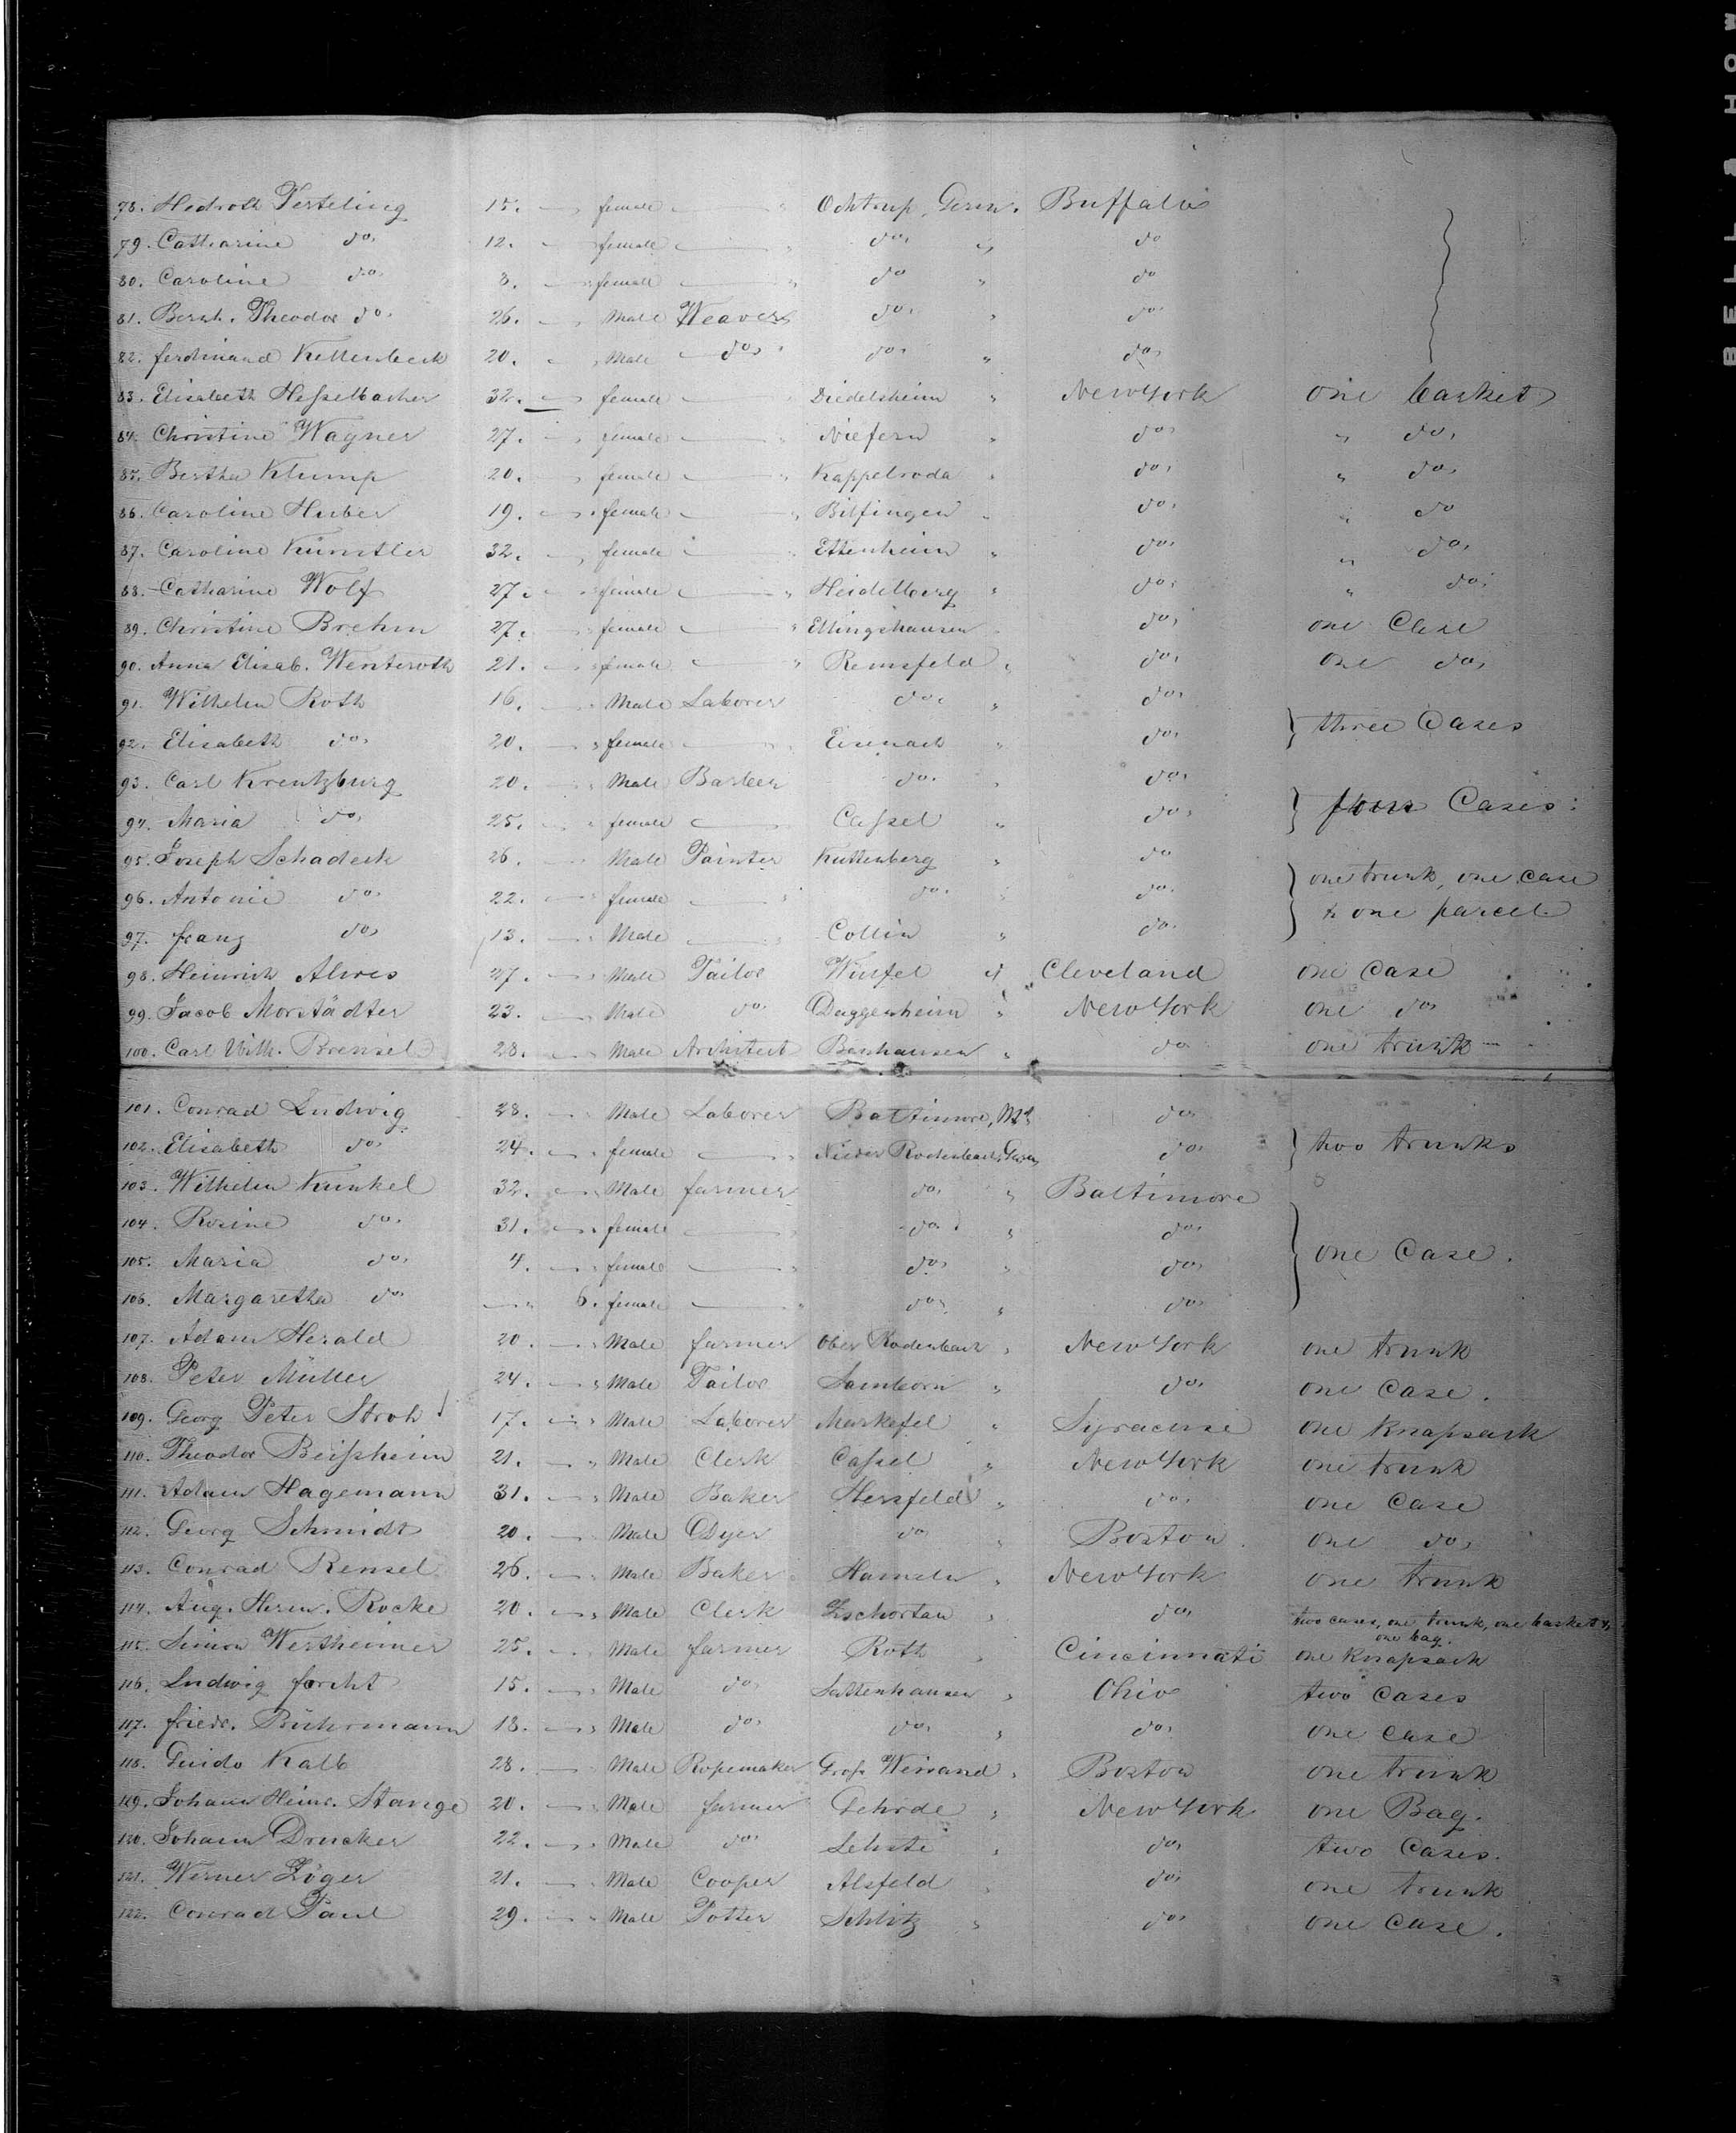 78. Hedroth Terteling 15. female " Ochtrup, Germ. Buffalo
79. Catharine do. 12. female " do. " do
80. Caroline do. 8. female " do " do
81. Bernh. Theodor do. 26. Male Weaver do. " do.
82. ferdinand Kettenbeck 20. Male do. do. " do.
83. Elisabeth Hesselbacher 32. female Diedelsheim " New York one basket
84. Christine Wagner 27. female Niefern " do. " do.
85. Bertha Klump 20. female Kappelroda " do. " do.
86. Caroline Huber 19. female " Bilfingen " do. " do
87. Caroline Künstler 32. female " Ettenheim " do. " do.
88. Catharine Wolf 27. female " Heidelberg " do. " do.
89. Christine Brehm 27. female " Ellingshausen " do. one Case
90. Anna Elisab. Wenteroth 21. female " Remsfeld " do. one do.
91. Wilhelm Roth 16. Male Laborer do. " do.
three Cases
92. Elisabeth do. 20. female Eisenach " do.
93. Carl Kreutzburg 20. Male Barber do. " do.
four Cases.
94. Maria do. 25. female Cassel " do.
95. Joseph Schadeck 26. Male Painter Kuttenberg " do
one trunk, one case
96. Antonie do. 22. female do. " do.
& one parcel.
97. franz do. 13. Male Collin " do.
98. Heinrich Alves 27. Male Tailor Wülfel " Cleveland one Case
99. Jacob Morstädter 23. Male do. Daggenheim " New York one do.
100. Carl Wilh. Brensel 28. Male Architect Banhausen " do one trunk
101. Conrad Ludwig 28. Male Laborer Baltimore, Md. do.
two trunks
102. Elisabeth do. 24. female Nieder Rodenbach, Germ. do.
103. Wilhelm Kunkel 32. Male farmer do. " Baltimore
104. Rosine do. 31. female do. " do.
one Case.
105. Maria do. 4. female do. " do.
106. Margaretha do. 6. female do. " do.
107. Adam Herald 20. Male farmer Ober Rodenbach " New York one trunk
108. Peter Müller 24. Male Tailor Lamborn " do. one Case.
109. Georg Peter Stroh 17. Male Laborer " Syracuse one Knapsack
110. Theodor Beissheim 21. Male Clerk Cassel " New York one trunk
111. Adam Hagemann 31. Male Baker Hersfeld " do. one Case
112. Georg Schmidt 20. Male Dyer do " Boston one do.
113. Conrad Rensel 26. Male Baker Hameln " New York one trunk
114. Aug. Herm. Rocke 20. Male Clerk Zschortau " do. two cases, one trunk, one basket &
one bag.
115. Simon Wertheimer 25. Male farmer Roth " Cincinnati one Knapsack
116. Ludwig forcht 15. Male do. Sattenhausen " Ohio two Cases
117. friedr. Bührmann 18. Male do. do. " do. one Case
118. Guido Kalb 28. Male Ropemaker Gross Weisand " Boston one trunk
119. Johann Heinr. Stange 20. Male farmer Gehrde " New York one Bag.
120. Johann Drucker 22. Male do. Lehste " do. two Cases.
121. Werner Zöger 21. Male Cooper Alsfeld " do. one trunk
122. Conrad Paul 29. Male Potter Schlitz " do. one Case.
BELL & HOW